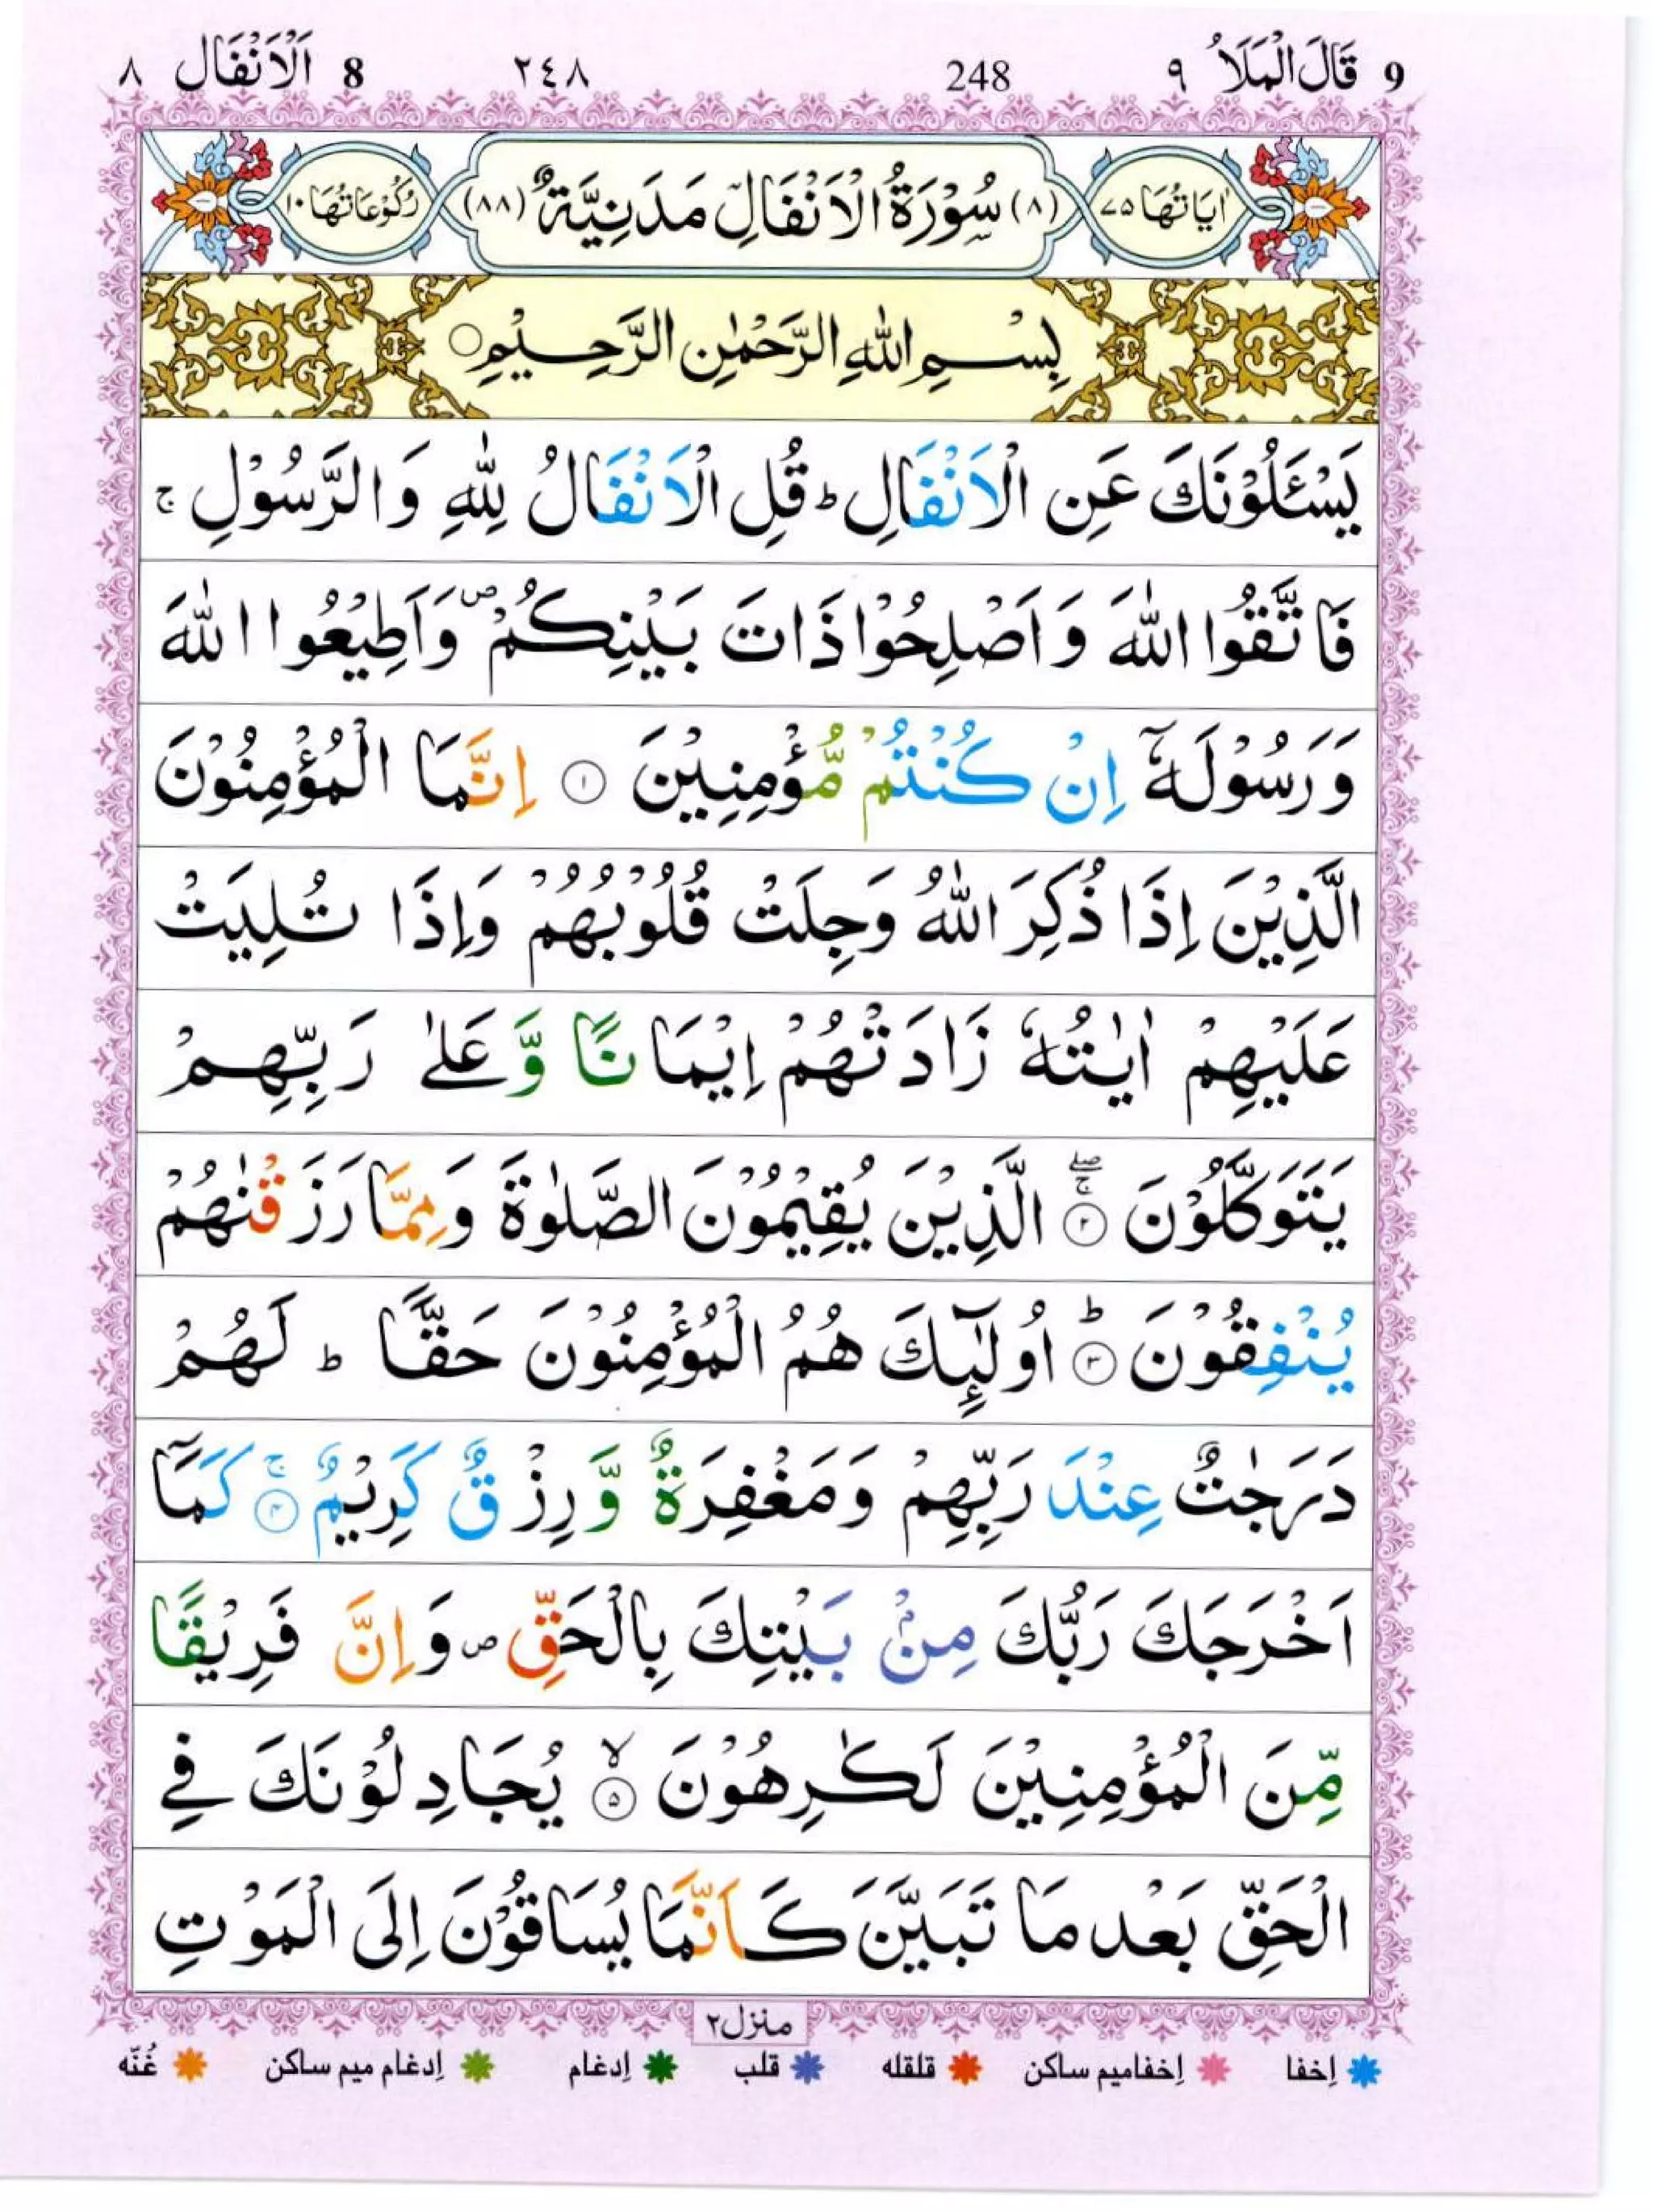 9 قَالَ الْمَلَاُ ٩ 248 ٢٤٨ 8 اَلْاَنْفَال ٨
اٰيَاتُهَا ٧٥ (٨) سُوْرَةُ الْاَنْفَالِ مَدَنِيَّةٌ (٨٨) رُكُوْعَاتُهَا ١٠
بِسْمِ اللّٰهِ الرَّحْمٰنِ الرَّحِيْمِ ○
يَسْـَٔلُوْنَكَ عَنِ الْاَنْفَالِ ؕ قُلِ الْاَنْفَالُ لِلّٰهِ وَالرَّسُوْلِ ۚ
فَاتَّقُوا اللّٰهَ وَاَصْلِحُوْا ذَاتَ بَيْنِكُمْ ۪ وَاَطِيْعُوا اللّٰهَ
وَرَسُوْلَهٗۤ اِنْ كُنْتُمْ مُّؤْمِنِيْنَ ۝١ اِنَّمَا الْمُؤْمِنُوْنَ
الَّذِيْنَ اِذَا ذُكِرَ اللّٰهُ وَجِلَتْ قُلُوْبُهُمْ وَاِذَا تُلِيَتْ
عَلَيْهِمْ اٰيٰتُهٗ زَادَتْهُمْ اِيْمَانًا وَّعَلٰى رَبِّهِمْ
يَتَوَكَّلُوْنَ ۝٢ۚۖ الَّذِيْنَ يُقِيْمُوْنَ الصَّلٰوةَ وَمِمَّا رَزَقْنٰهُمْ
يُنْفِقُوْنَ ۝٣ؕ اُولٰٓئِكَ هُمُ الْمُؤْمِنُوْنَ حَقًّا ؕ لَهُمْ
دَرَجٰتٌ عِنْدَ رَبِّهِمْ وَمَغْفِرَةٌ وَّرِزْقٌ كَرِيْمٌ ۝٤ۚ كَمَاۤ
اَخْرَجَكَ رَبُّكَ مِنْۢ بَيْتِكَ بِالْحَقِّ ۪ وَاِنَّ فَرِيْقًا
مِّنَ الْمُؤْمِنِيْنَ لَكٰرِهُوْنَ ۝٥ۙ يُجَادِلُوْنَكَ فِى
الْحَقِّ بَعْدمَا تَبَيَّنَ كَاَنَّمَا يُسَاقُوْنَ اِلَى الْمَوْتِ
منزل ٢
إخفا إخفاميم ساكن قلقله قلب إدغام إدغام ميم ساكن غُنّه